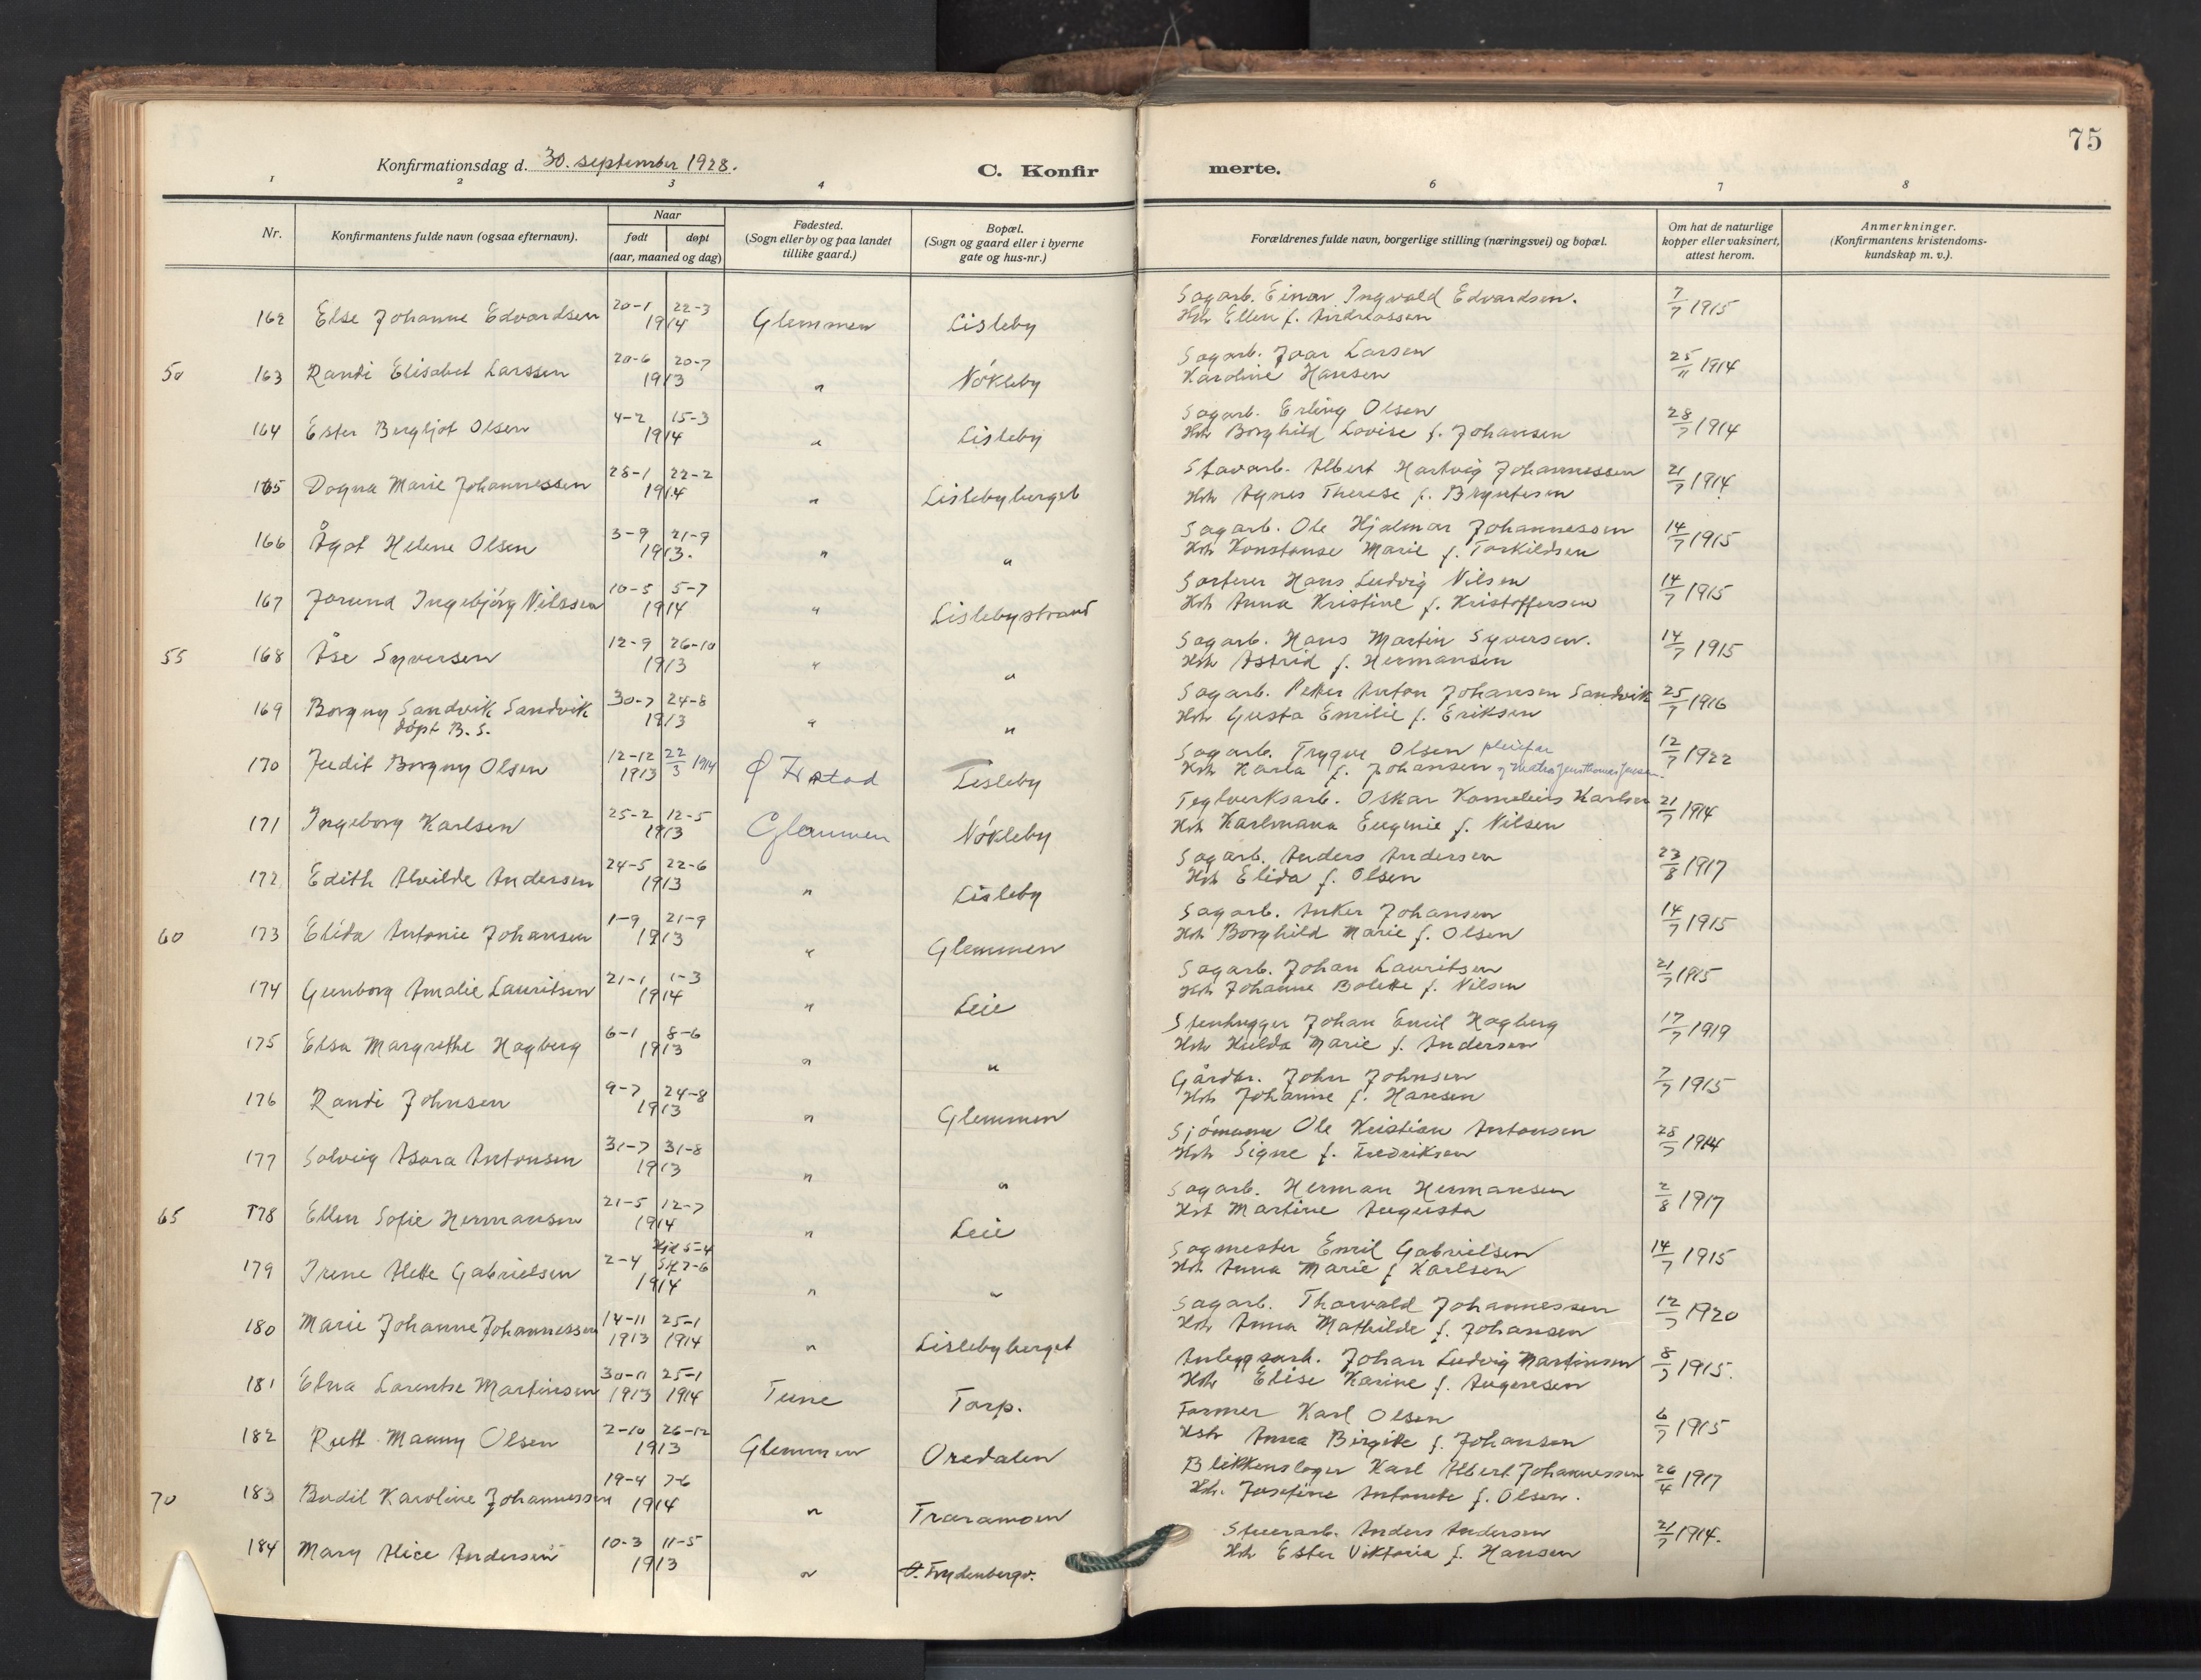 75
Konfirmationsdag d. 30. september 1928.
C. Konfirmerte.
1 2 3 4 6 7 8
Nr. Konfirmantens fulde navn (ogsaa efternavn). Naar født døpt (aar, maaned og dag) Fødested. (Sogn eller by og paa landet tillike gaard.) Bopæl. (Sogn og gaard eller i byerne gate og hus-nr.) Forældrenes fulde navn, borgerlige stilling (næringsvei) og bopæl. Om hat de naturlige kopper eller vaksinert, attest herom. Anmerkninger. (Konfirmantens kristendoms-kundskap m. v.).
162 Else Johanne Edvardsen 20-1 22-3 1914 Glemmen Lisleby Sagarb. Einar Ingvald Edvardsen. 7/7 1915
Hstr Ellen f. Andreassen
50 163 Randi Elisabet Larssen 20-6 20-7 1913 " Nökleby Sagarb. Ivar Larsen 25/11 1914
Karoline Hansen
164 Ester Bergljot Olsen 4-2 15-3 1914 " Lisleby Sagarb. Erling Olsen 28/7 1914
Hstr Borghild Lovise f. Johansen
165 Dagna Marie Johannessen 28-1 22-2 1914 " Lislebyberget Stavarb. Albert Hartvig Johannessen 21/7 1914
Hstr Agnes Therese f. Bryntesen
166 Ågot Helene Olsen 3-9 21-9 1913. " " Sagarb. Ole Hjalmar Johannessen 14/7 1915
Hstr Konstanse Marie f. Torkildsen
167 Jorund Ingebjörg Nilssen 10-5 5-7 1914 " Lislebystrand Sorterer Hans Ludvig Nilsen 14/7 1915
Hstr Anna Kristine f. Kristoffersen
55 168 Åse Syversen 12-9 26-10 1913 " " Sagarb. Hans Martin Syversen. 14/7 1915
Hstr Astrid f. Hermansen
169 Borgny Sandvik Sandvik 30-7 24-8 1913 " " Sagarb. Petter Anton Johansen Sandvik 25/7 1916
döpt B. S. Hstr Gusta Emilie f. Eriksen
170 Judit Borgny Olsen 12-12 1913 22/3 1914 Ø Frstad Lisleby Sagarb. Trygve Olsen pleiefar 12/7 1922
Hstr Karla f. Johansen
171 Ingeborg Karlsen 25-2 12-5 1913 Glemmen Nökleby Teglverksarb. Oskar Kornelius Karlsen 21/7 1914
Hstr Karlmana Eugenie f. Nilsen
172 Edith Alvilde Andersen 24-5 22-6 1913 " Lisleby Sagarb. Anders Andersen 23/8 1917
Hstr Elida f. Olsen
60 173 Elida Antonie Johansen 1-9 21-9 1913 " Glemmen Sagarb. Anker Johansen 14/7 1915
Hstr Borghild Marie f. Olsen
174 Gunborg Amalie Lauritsen 21-1 1-3 1914 " Leie Sagarb. Johan Lauritsen 21/7 1915
Hstr Johanne Bolette f. Nilsen
175 Elsa Margrethe Hagberg 6-1 8-6 1913 " " Stenhugger Johan Emil Hagberg 17/7 1919
Hstr Hulda Marie f. Andersen
176 Randi Johnsen 9-7 24-8 1913 " Glemmen Gårdbr. John Johnsen 7/7 1915
Hstr Johanne f. Hansen
177 Solveig Asora Antonsen 31-7 31-8 1913 " " Sjömann Ole Kristian Antonsen 28/7 1914
Hstr Signe f. Fredriksen
65 178 Ellen Sofie Hermansen 21-5 12-7 1914 " Leie Sagarb. Herman Hermansen 2/8 1917
Hst Martine Augusta
179 Irene Alette Gabrielsen 2-4 Hjd 5-4 Stf 7-6 1914 " " Sagmester Emil Gabrielsen 14/7 1915
Hstr Anna Marie f Karlsen
180 Marie Johanne Johannessen 14-11 1913 25-1 1914 " Lislebyberget Sagarb. Thorvald Johannessen 12/7 1920
Hstr Anna Mathilde f. Johansen
181 Elna Larentse Martinsen 30-11 1913 25-1 1914 Tune Torp. Anleggsarb. Johan Ludvig Martinsen 8/7 1915.
Hstr Elise Karine f. Augensen
182 Rutt Manny Olsen 2-10 26-12 1913 Glemmen Oredalen Formер Karl Olsen 6/7 1915
Hstr Anna Birgite f. Johansen
70 183 Bodil Karoline Johannessen 19-4 7-6 1914 " Traramoen Blikkenslager Karl Albert Johannessen 26/4 1917
Hst. Josefine Antonette f. Olsen.
184 Mary Alice Andersen 10-3 11-5 1913 " Frydenbergv. Stuerarb. Anders Andersen 21/7 1914.
Hstr Ester Viktoria f. Hansen